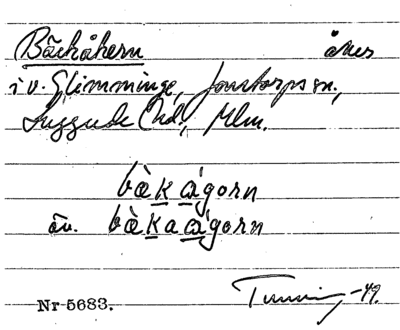 Bäckåhern åker
i v. Glimminge, Jonstorps sn,
Luggude hd, Mlm.
bàk ágorn
äv. bàka ágorn
Nr 5683. -49.